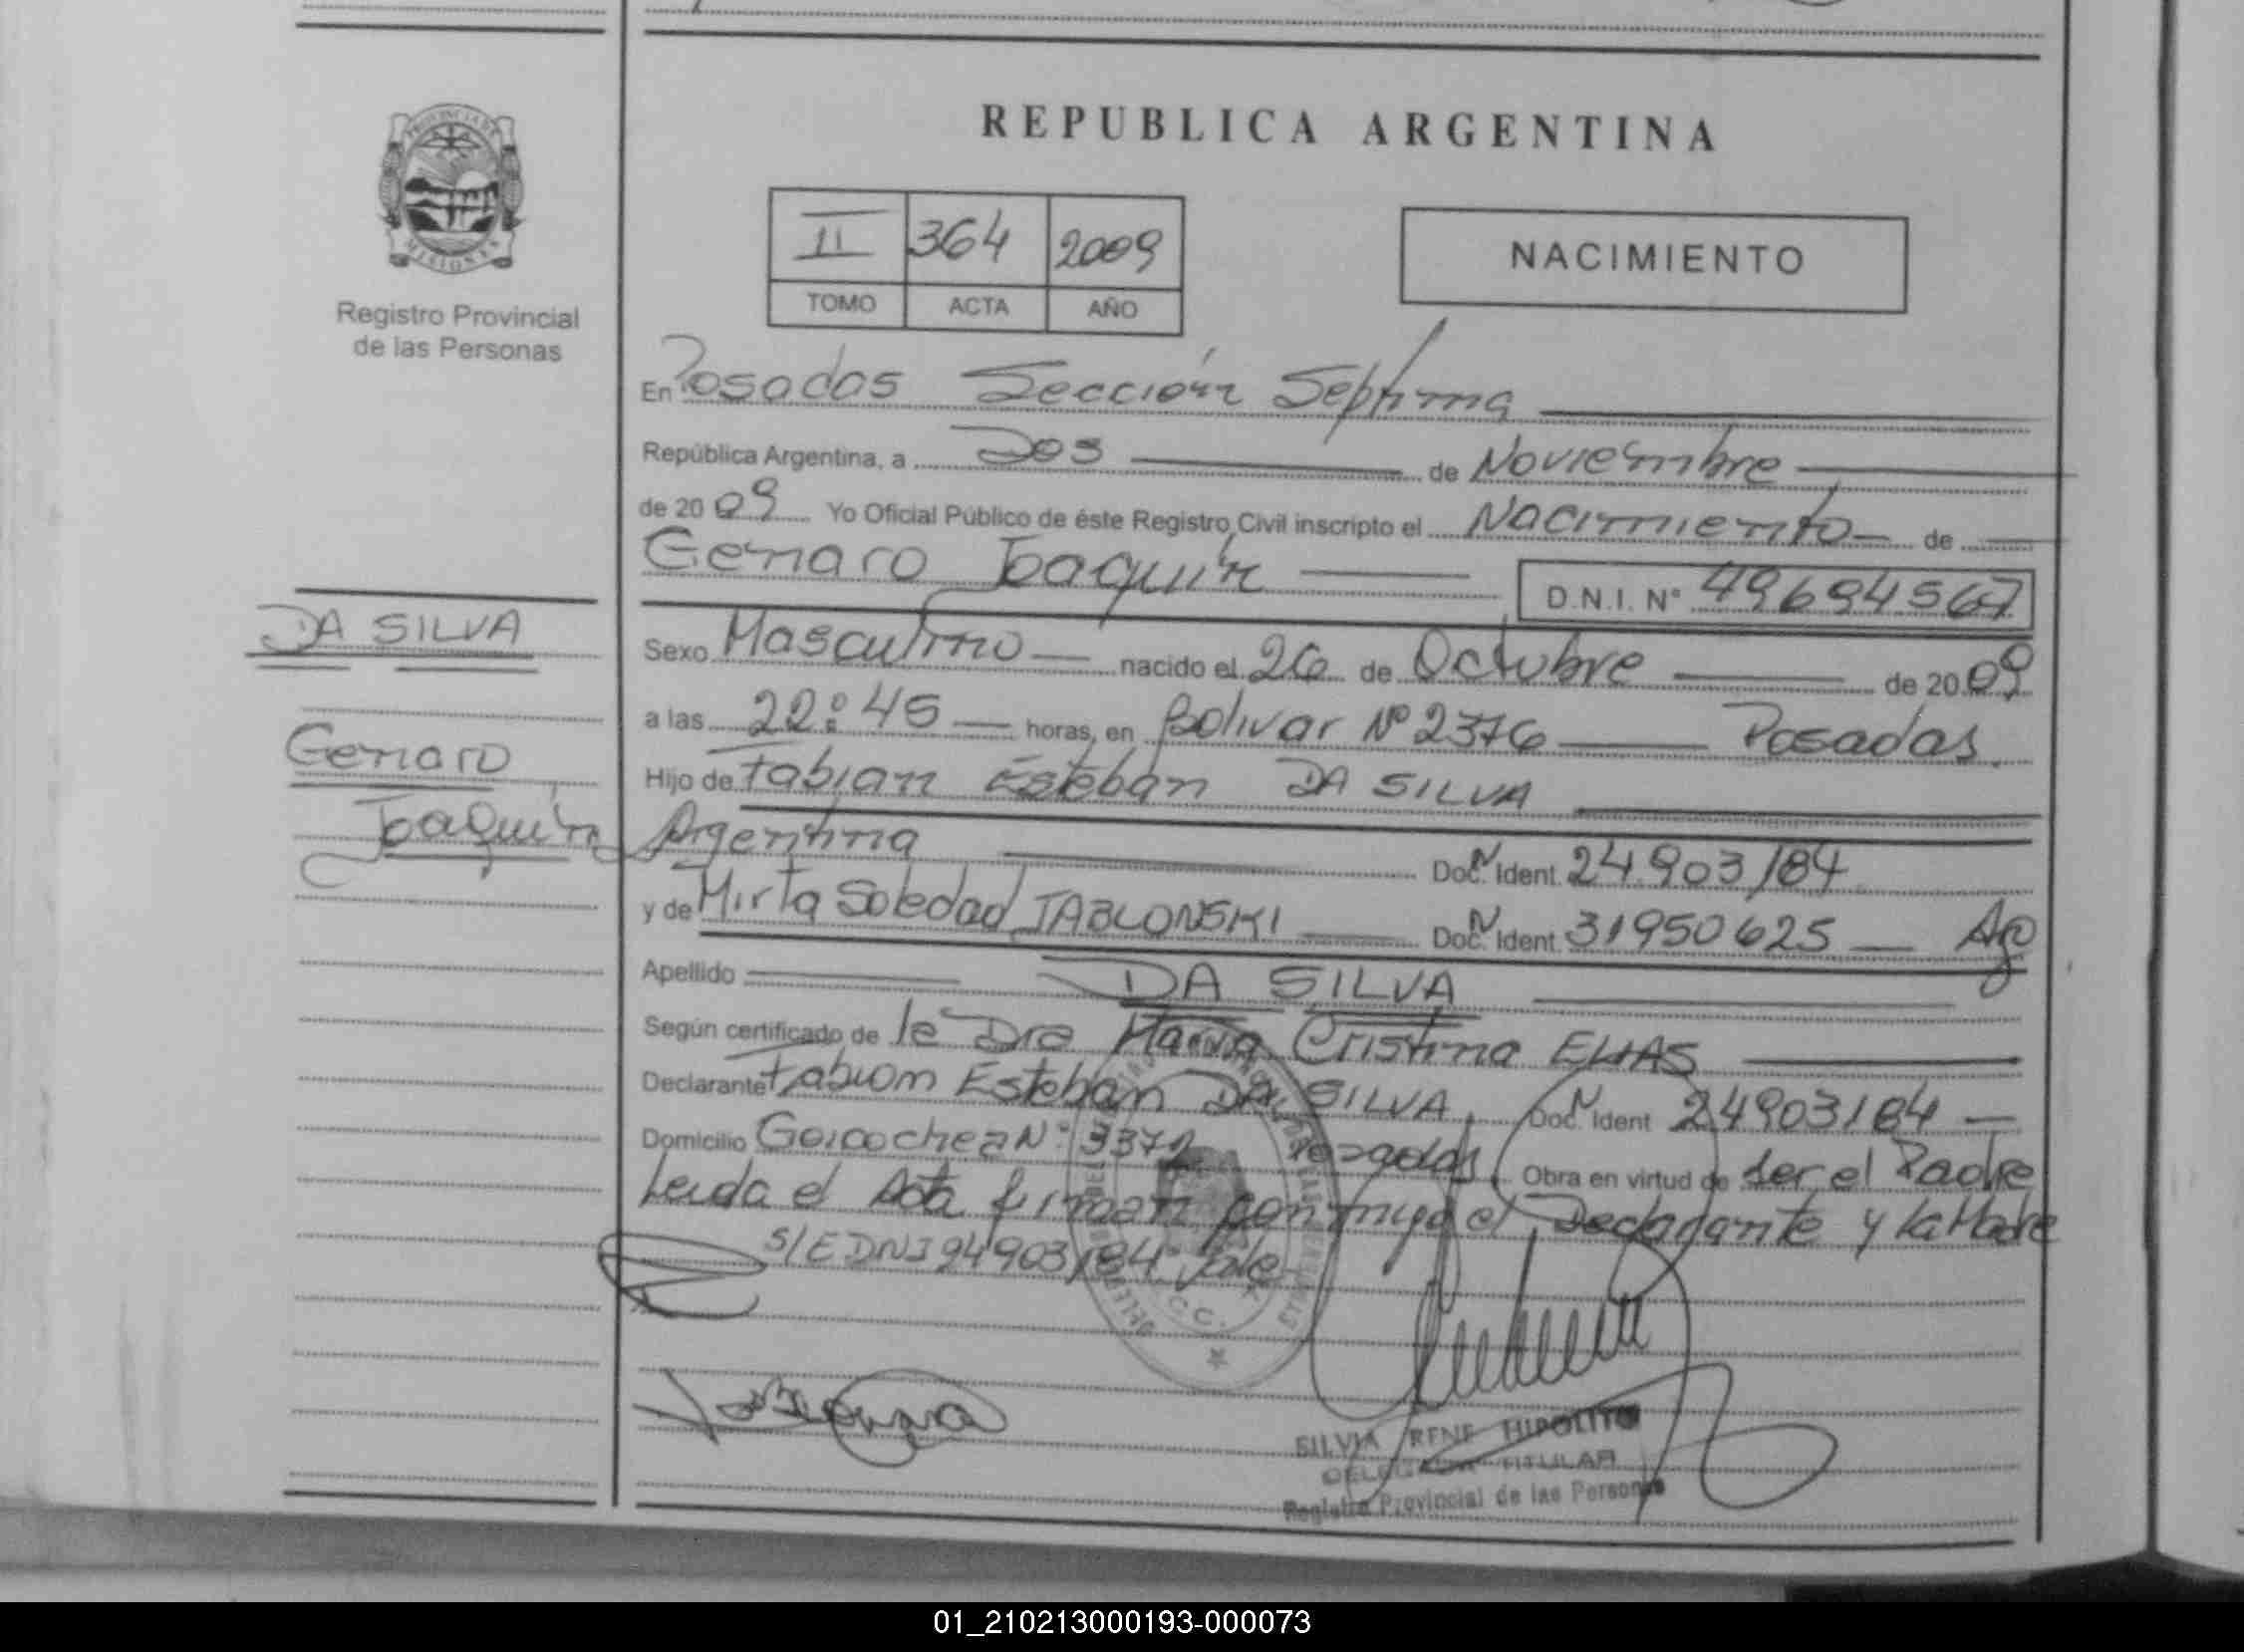 REPUBLICA ARGENTINA
PROVINCIA DE
MISIONES
Registro Provincial
de las Personas
II 364 2009
TOMO ACTA AÑO
NACIMIENTO
En Posadas Sección Séptima
República Argentina, a Dos de Noviembre
de 2009 Yo Oficial Público de éste Registro Civil inscripto el Nacimiento de
Genaro Joaquín D.N.I. Nº 49694567
DA SILVA
Genaro
Joaquín
Sexo Masculino nacido el 26 de Octubre de 2009
a las 22:45 horas, en Bolivar Nº 2376 Posadas
Hijo de Fabian Esteban DA SILVA
Argentina Doc. Ident. 24.903184
y de Mirta Soledad JABLONSKI Doc. Ident. 31950625
Apellido DA SILVA
Según certificado de la Dra Maria Cristina ELIAS
Declarante Fabian Esteban DA SILVA Doc. Ident 24903184
Domicilio Goicochea Nº Posadas Obra en virtud de ser el Padre
Leida el Acta firman conmigo el Declarante y la Madre
S/E DNI 24903184 Vale
SILVIA RENE HIPOLITO
DELEGADA TITULAR
Registro Provincial de las Personas
01_210213000193-000073